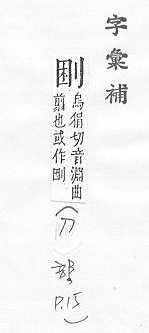 字彙補
烏涓切音淵曲
剪也或作
(刀
部
P.15)